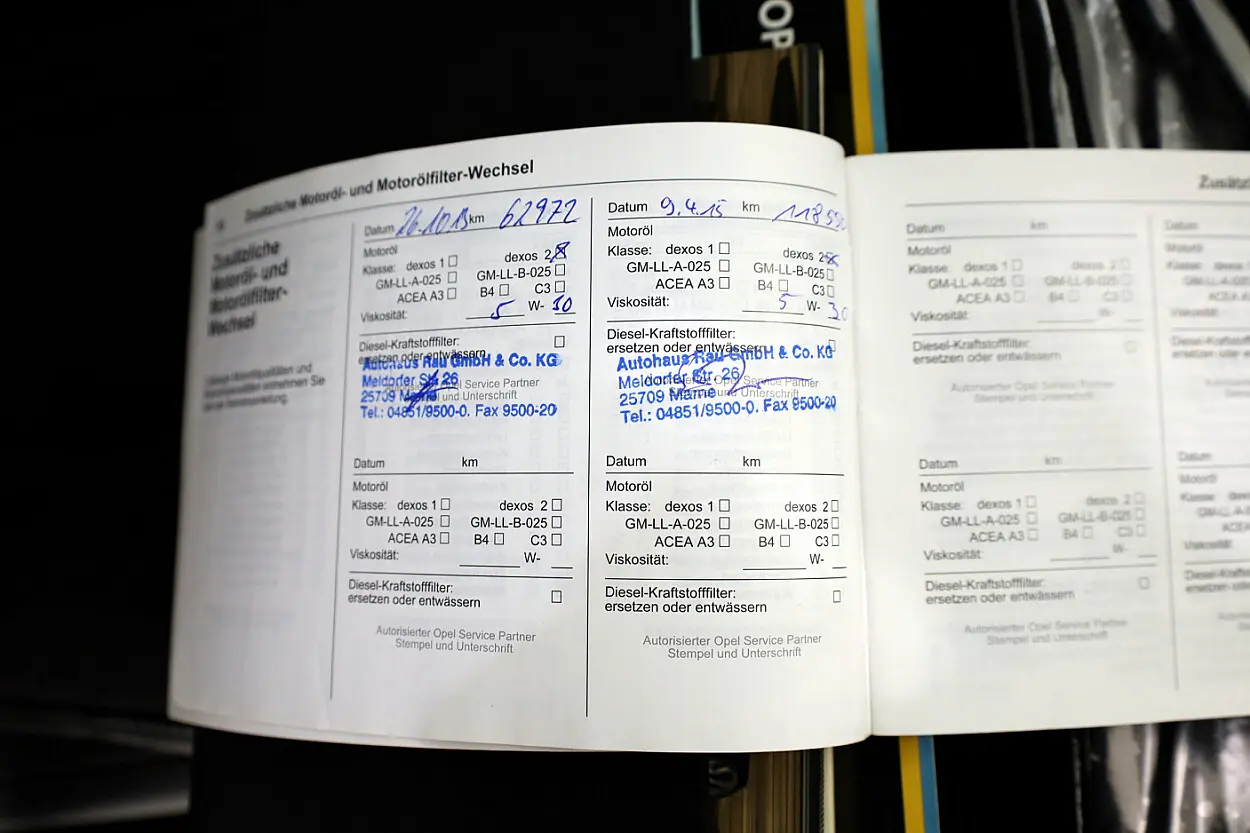 OP
Zusätzliche Motoröl- und Motorölfilter-Wechsel
Zusätzliche
Motoröl- und
Motorölfilter-
Wechsel
Datum 26.10.13 km 62972
Motoröl
Klasse: dexos 1 ☐ dexos 2 ☒
GM-LL-A-025 ☐ GM-LL-B-025 ☐
ACEA A3 ☐ B4 ☐ C3 ☐
Viskosität: 5 W- 30
Diesel-Kraftstofffilter: ☐
ersetzen oder entwässern
Autohaus Rau GmbH & Co. KG
Meldorfer Str. 26
Opel Service Partner
25709 Marne
und Unterschrift
Tel.: 04851/9500-0. Fax 9500-20
Datum km
Motoröl
Klasse: dexos 1 ☐ dexos 2 ☐
GM-LL-A-025 ☐ GM-LL-B-025 ☐
ACEA A3 ☐ B4 ☐ C3 ☐
Viskosität: W-
Diesel-Kraftstofffilter:
ersetzen oder entwässern ☐
Autorisierter Opel Service Partner
Stempel und Unterschrift
Datum 9.4.15 km
Motoröl
Klasse: dexos 1 ☐ dexos 2 ☒
GM-LL-A-025 ☐ GM-LL-B-025 ☐
ACEA A3 ☐ B4 ☐ C3 ☐
Viskosität: 5 W- 30
Diesel-Kraftstofffilter:
ersetzen oder entwässern ☐
Autohaus Rau GmbH & Co. KG
Meldorfer Str. 26
Opel Service Partner
25709 Marne
und Unterschrift
Tel.: 04851/9500-0. Fax 9500-20
Datum km
Motoröl
Klasse: dexos 1 ☐ dexos 2 ☐
GM-LL-A-025 ☐ GM-LL-B-025 ☐
ACEA A3 ☐ B4 ☐ C3 ☐
Viskosität: W-
Diesel-Kraftstofffilter:
ersetzen oder entwässern ☐
Autorisierter Opel Service Partner
Stempel und Unterschrift
Datum km
Motoröl
Klasse: dexos 1 ☐ dexos 2 ☐
GM-LL-A-025 ☐ GM-LL-B-025 ☐
ACEA A3 ☐ B4 ☐ C3 ☐
Viskosität: W-
Diesel-Kraftstofffilter: ☐
ersetzen oder entwässern
Autorisierter Opel Service Partner
Stempel und Unterschrift
Datum km
Motoröl
Klasse: dexos 1 ☐ dexos 2 ☐
GM-LL-A-025 ☐ GM-LL-B-025 ☐
ACEA A3 ☐ B4 ☐ C3 ☐
Viskosität: W-
Diesel-Kraftstofffilter: ☐
ersetzen oder entwässern
Autorisierter Opel Service Partner
Stempel und Unterschrift
Datum
Motoröl
Datum
Motoröl